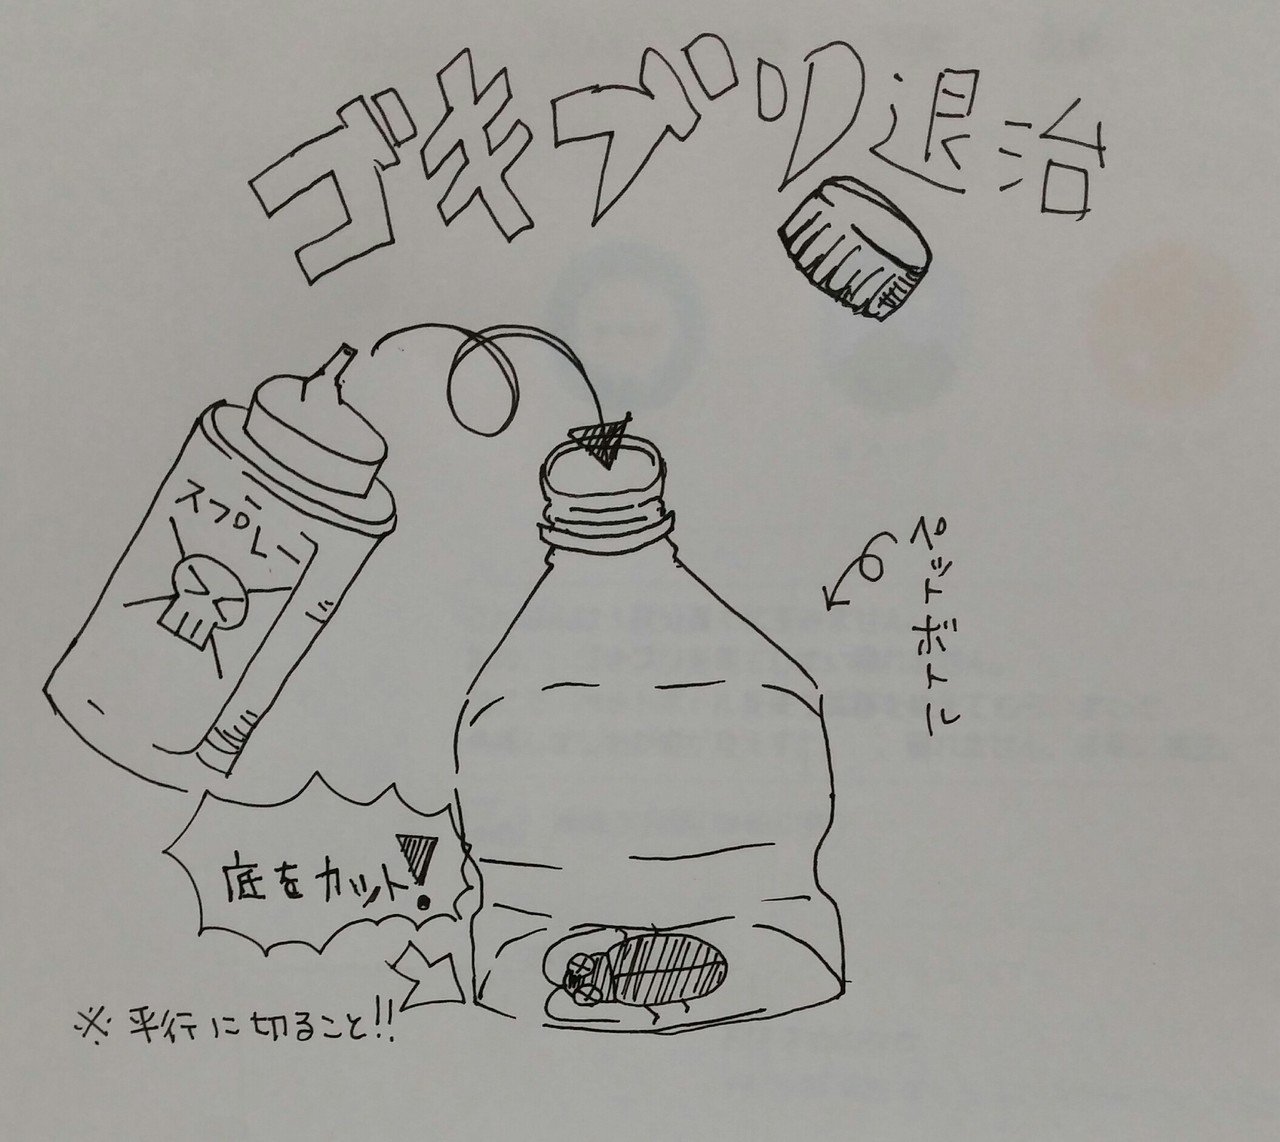 ゴキブリ退治
スプレー
ペットボトル
底をカット!
※平行に切ること!!